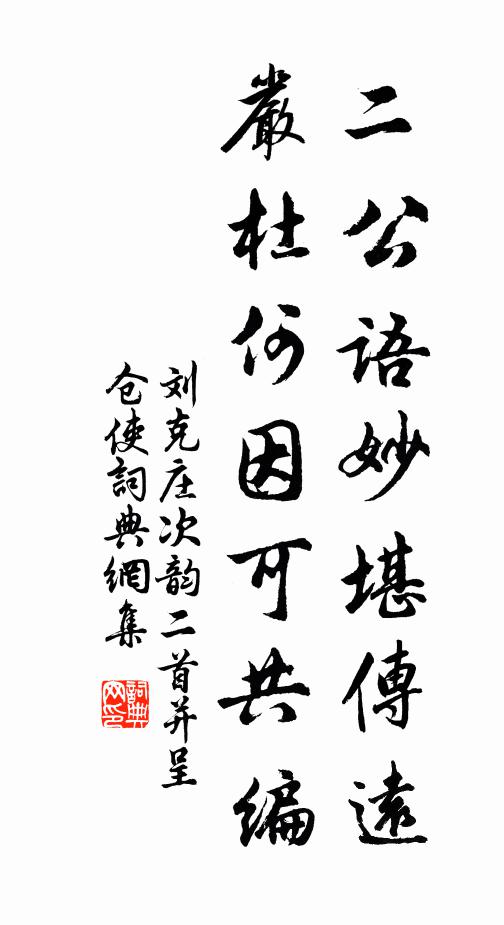 二公語妙堪傳遠
嚴杜何因可共編
刘克庄次韵二首并呈
仓使詞典網集
詞典網印